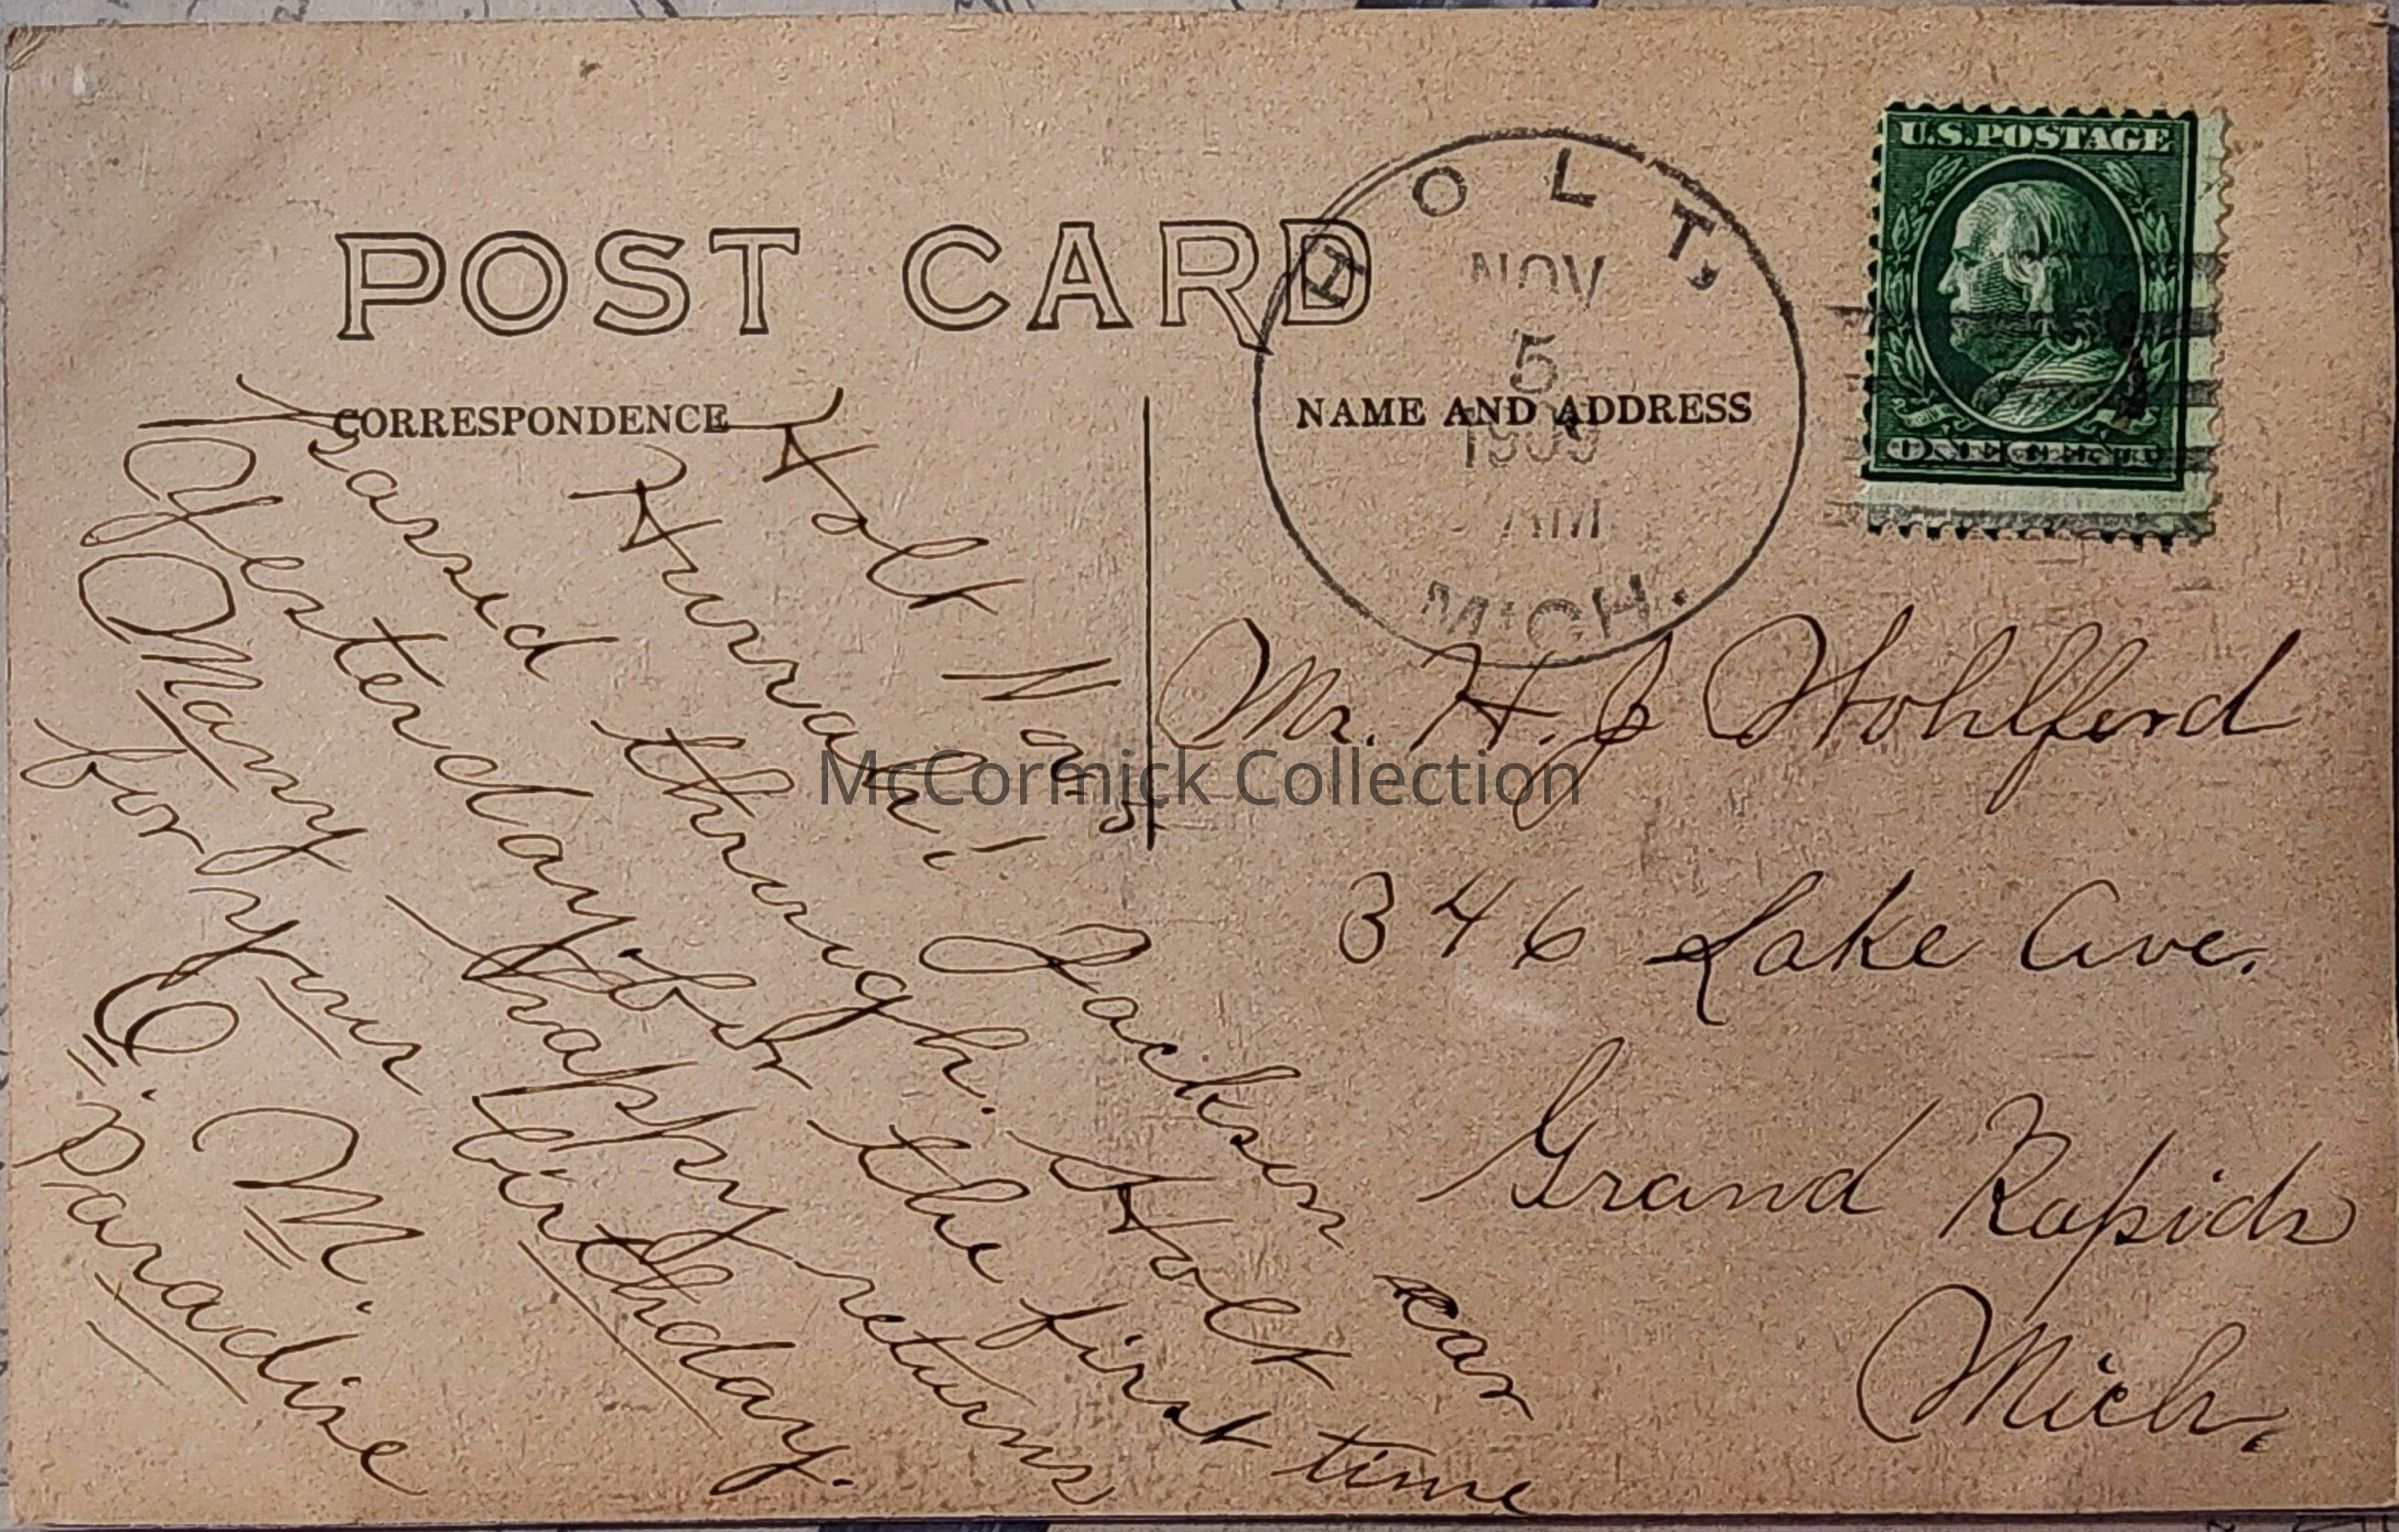 POST CARD
CORRESPONDENCE
Holt Nov 5
Hurrah! Jackson car
passed through Holt
Yesterday for the first time
Many happy returns
for your birthday.
E. M.
Paradise
HOLT,
NOV
5
1909
AM
MICH.
NAME AND ADDRESS
U.S. POSTAGE
ONE CENT
Mr. H. J Wohlford
346 Lake Ave.
Grand Rapids
Mich.
McCormick Collection